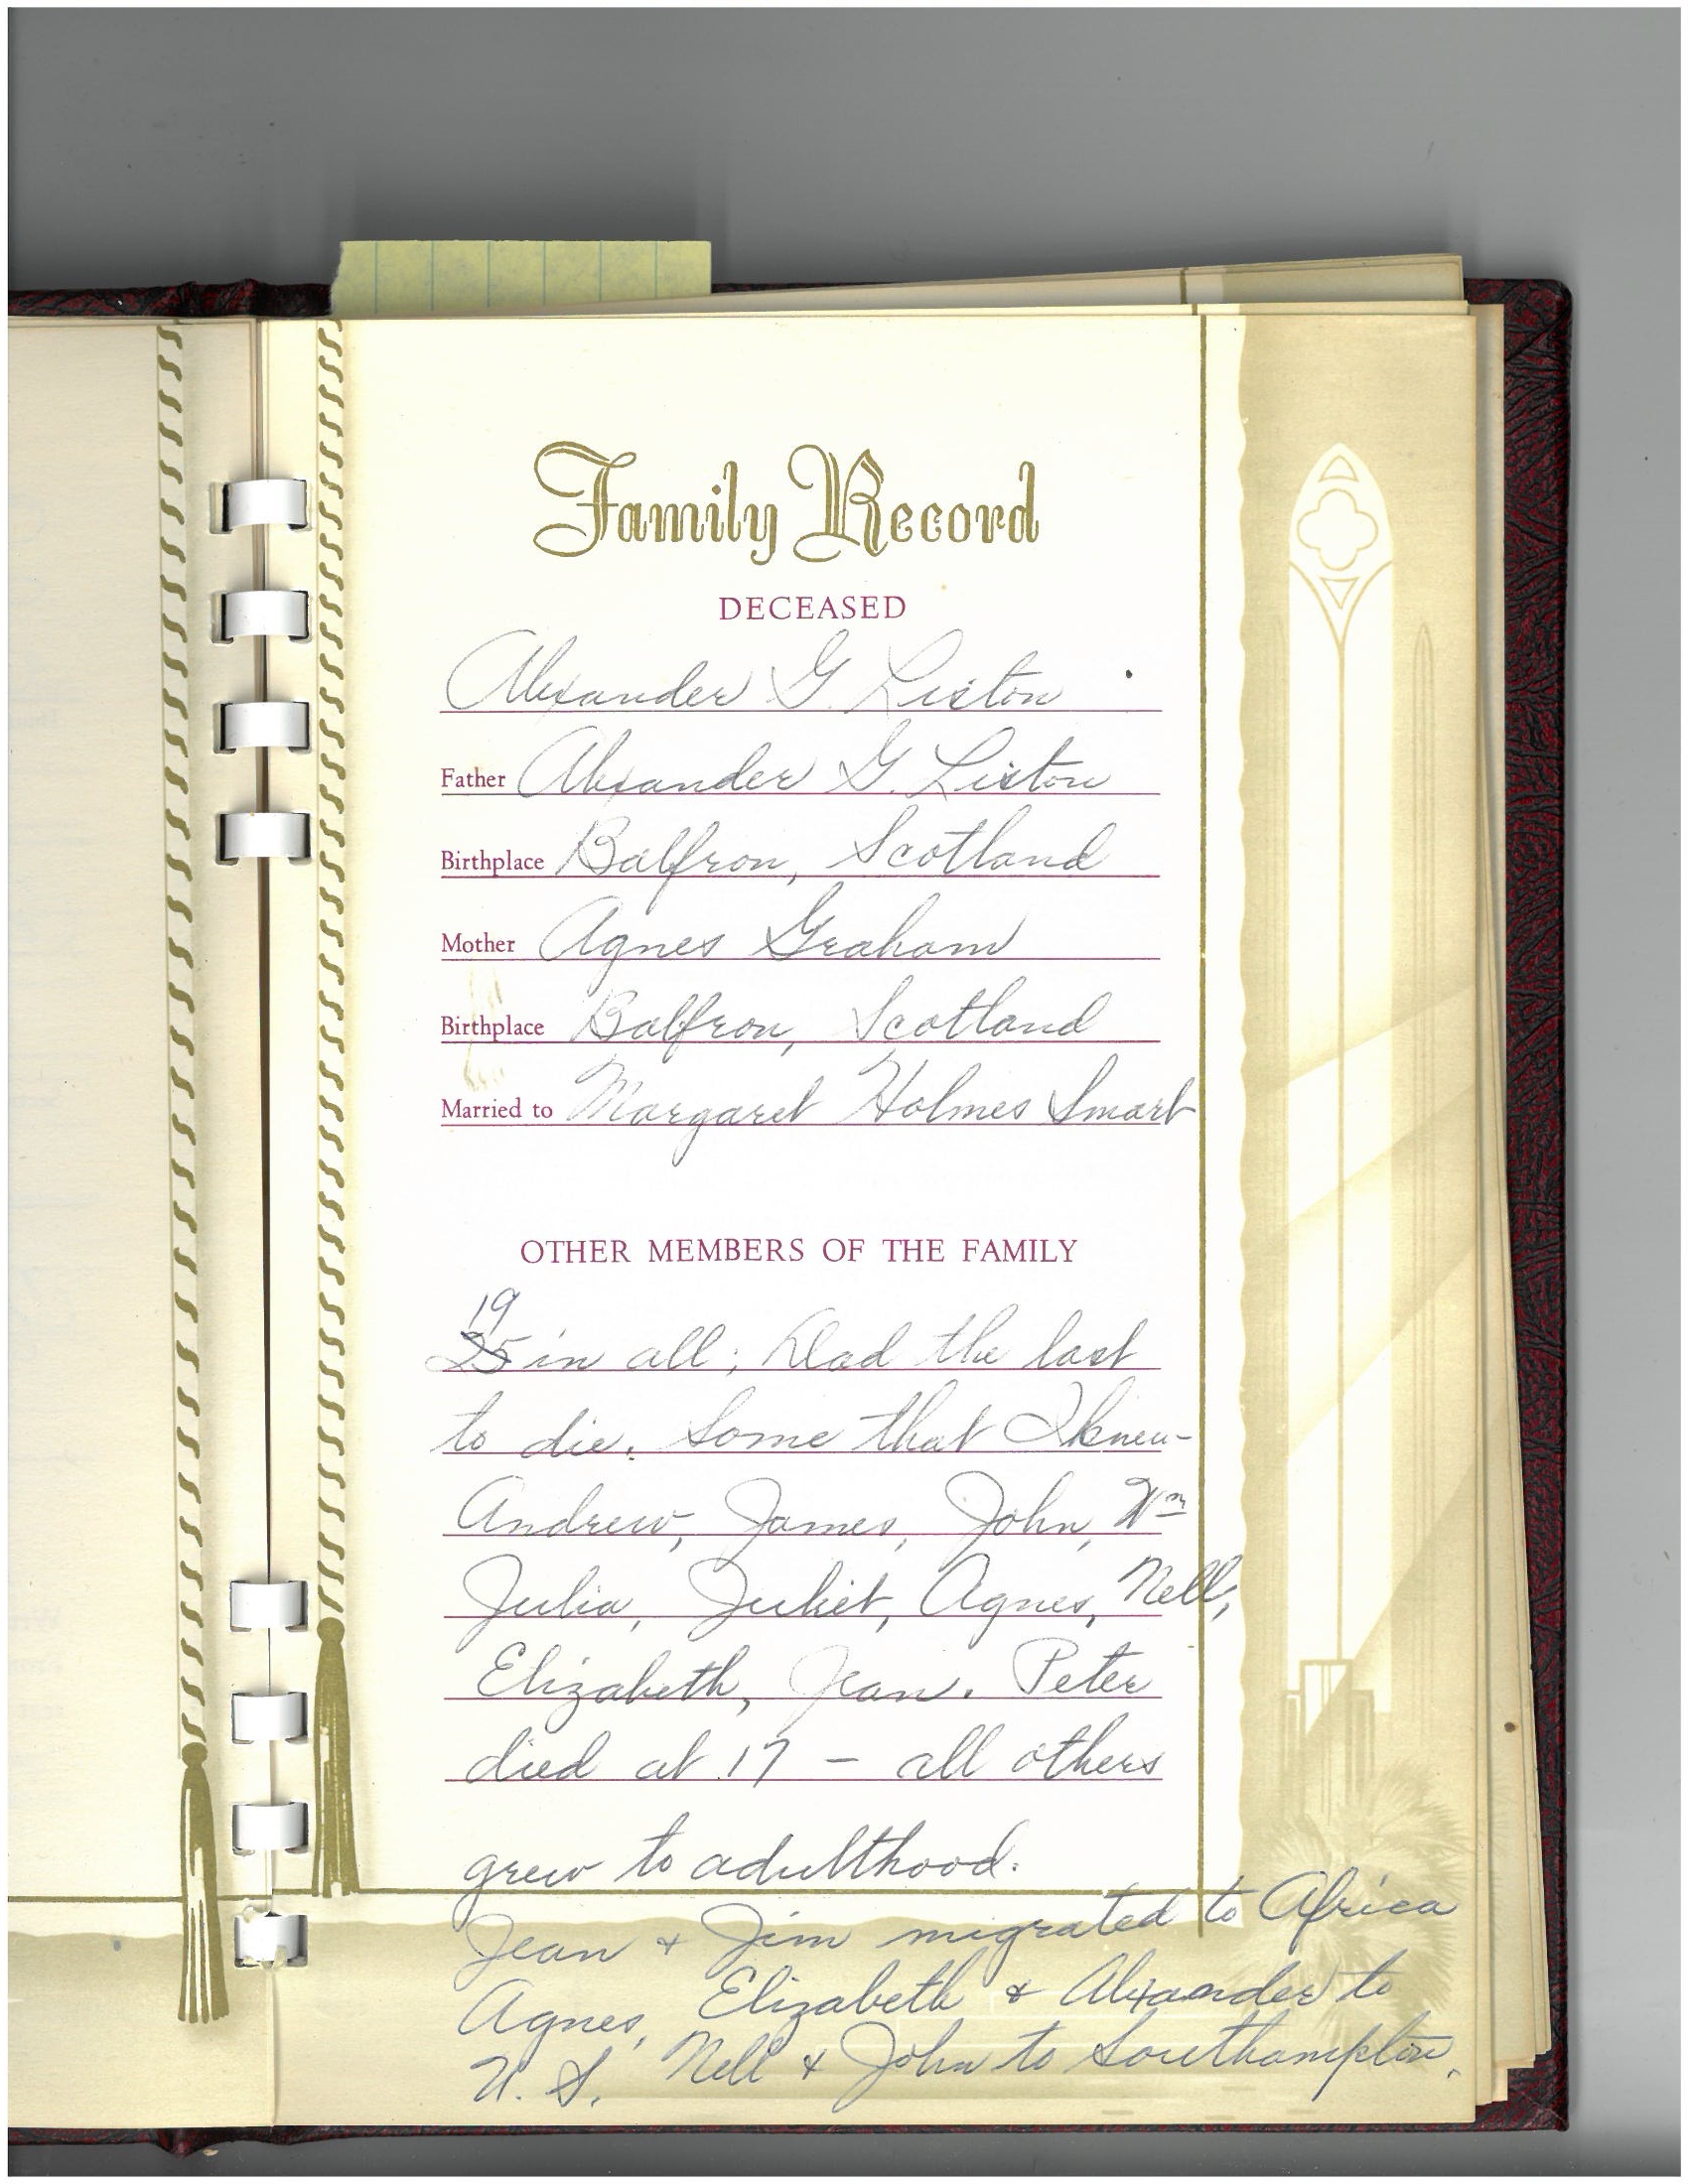 Family Record
DECEASED
Alexander G. Liston
Father Alexander G. Liston
Birthplace Balfron, Scotland
Mother Agnes Graham
Birthplace Balfron, Scotland
Married to Margaret Holmes Smart
OTHER MEMBERS OF THE FAMILY
19
25 in all; Dad the last
to die. Some that I knew-
Andrew, James, John, Wm
Julia, Juliet, Agnes, Nell,
Elizabeth, Jean. Peter
died at 17 - all others
grew to adulthood.
Jean + Jim migrated to Africa
Agnes, Elizabeth + Alexander to
U.S. Nell + John to Southampton.